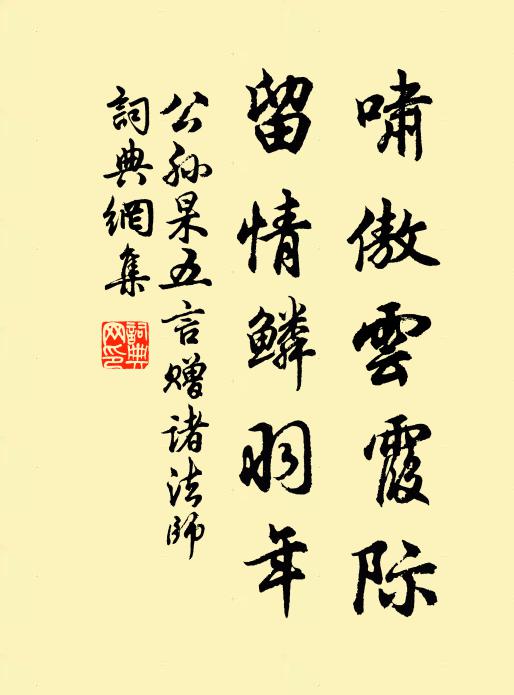 嘯傲雲霞際
留情鱗羽年
公孫杲五言贈諸法師
詞典網集
詞典網印